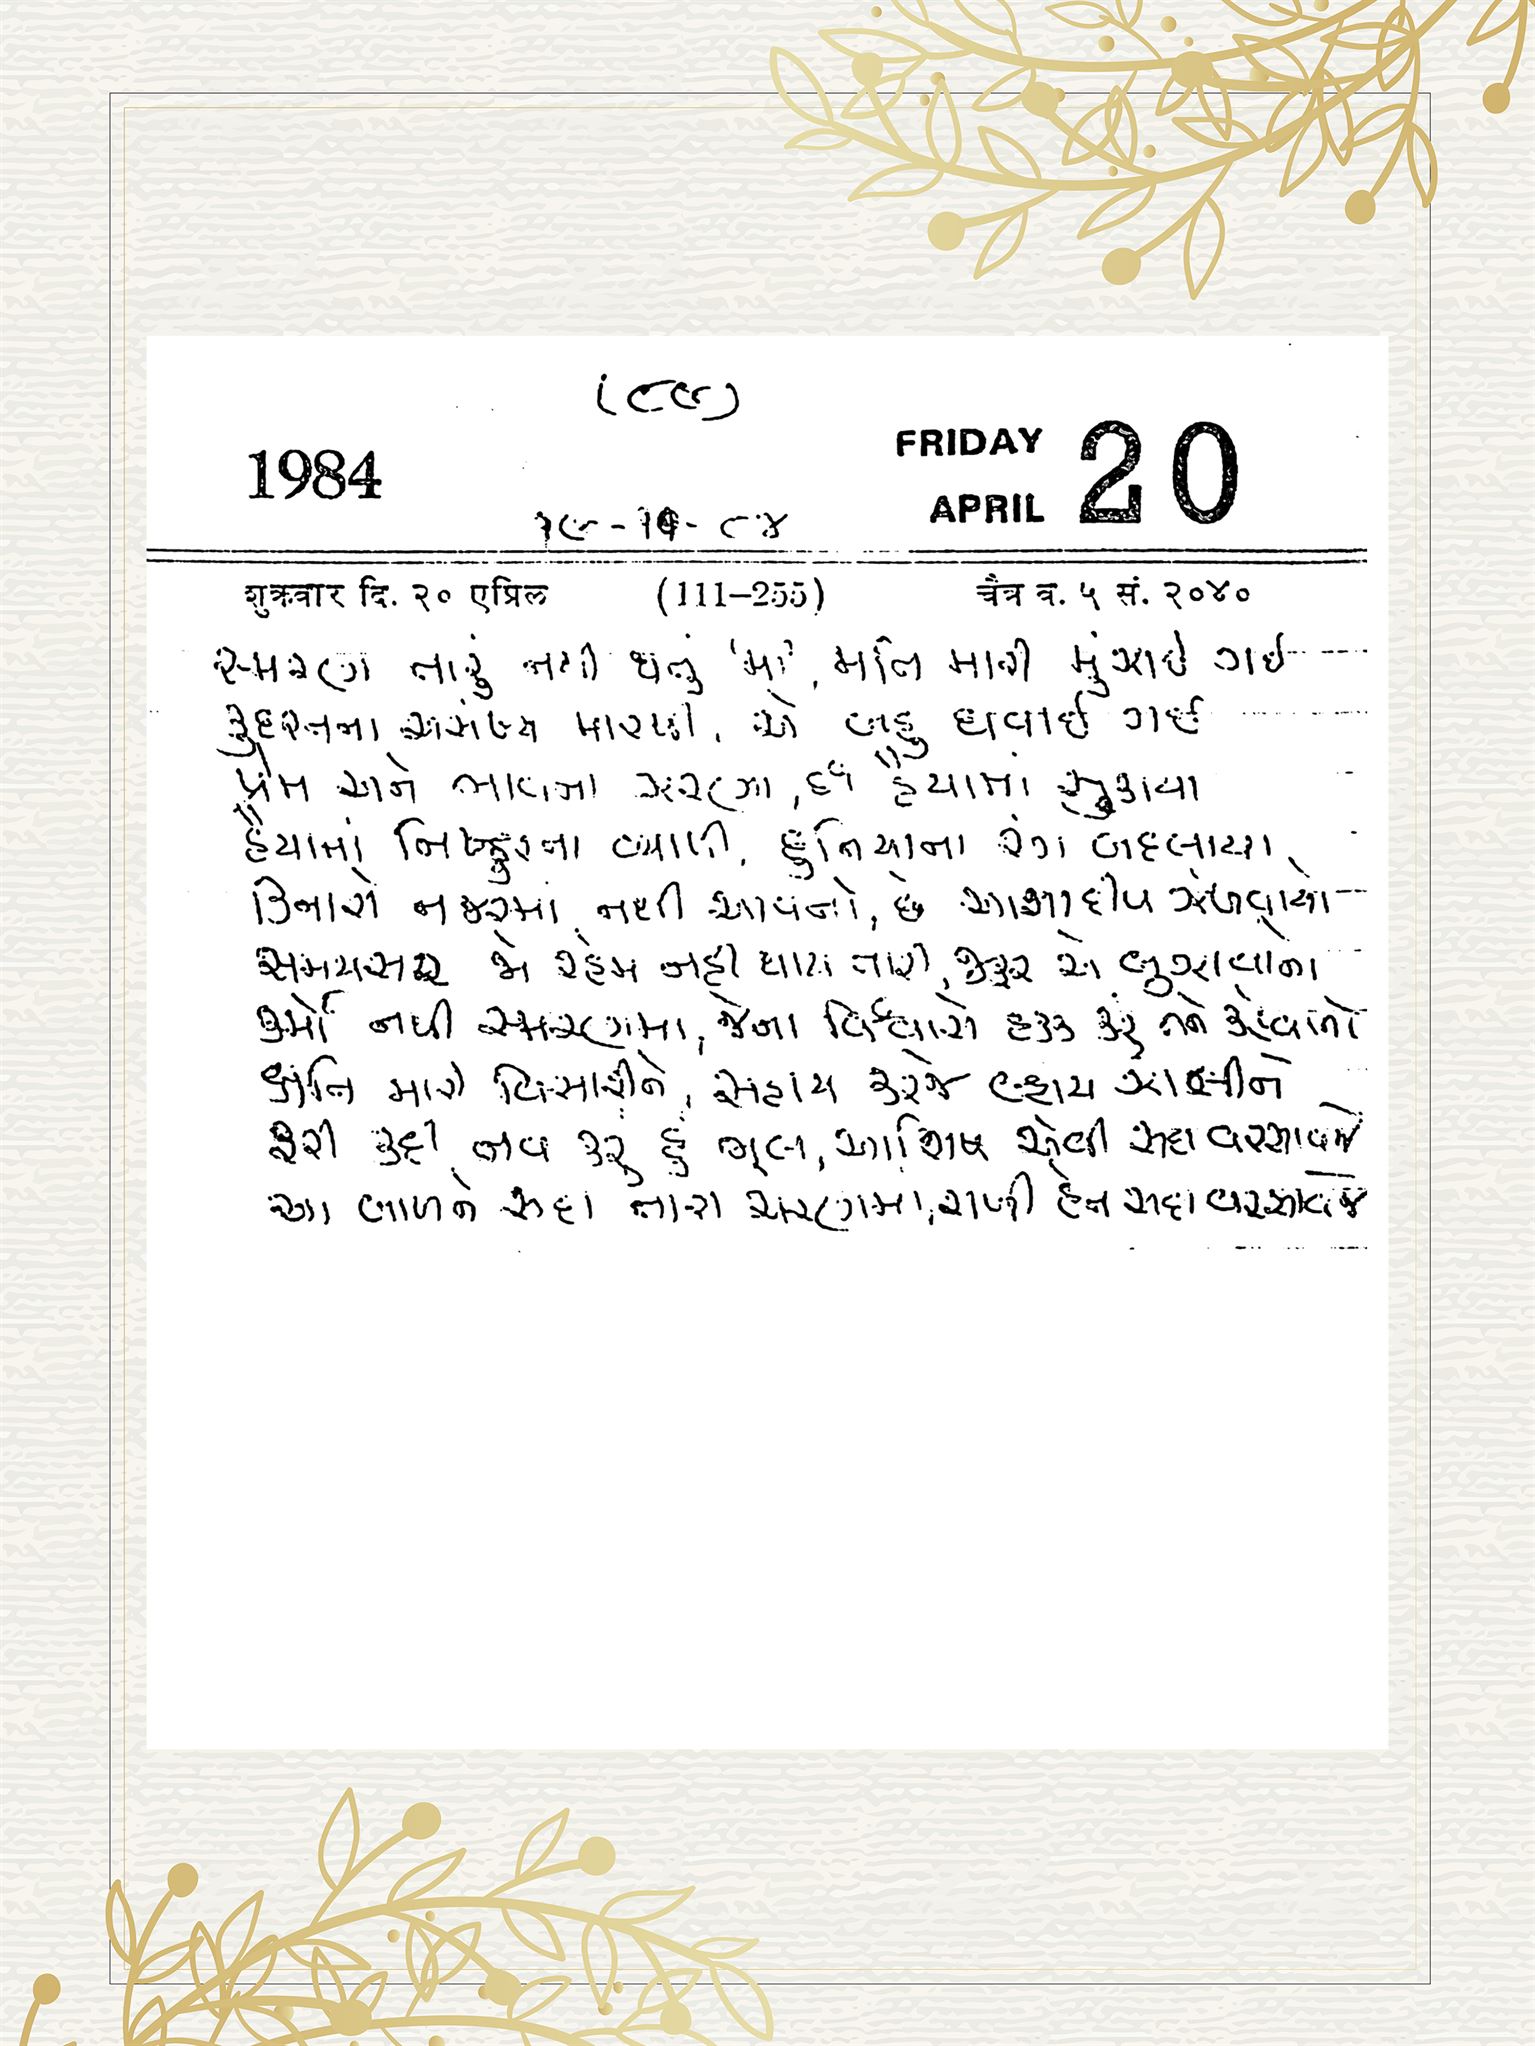 (૮૯)
1984
FRIDAY 20
APRIL
૧૯-૧૦-૮૪
शुक्रवार दि. २० एप्रिल (111–255) चैत्र व. ५ सं. २०४०
સ્મરણ તારું નથી થતું 'મા', મતિ મારી મુંઝાઈ ગઈ
કુદરતના અસંખ્ય મારથી, એ બહુ ઘવાઈ ગઈ
પ્રેમ અને ભાવના ઝરણા, હૈયામાં સુકાયા
હૈયામાં નિષ્ઠુરતા વ્યાપી, દુનિયાના રંગ બદલાયા
કિનારો નજરમાં નથી આવતો, છે આશાદીપ
સમયસર જો રહેમ નહી થાય તારી, જરૂર એ બુઝાવાનો
કર્મો નથી સ્મરણમા, જેના વિશ્વાસે હક્ક કરું તને કહેવાનો
ક્ષતિ મારી વિસારીને, સહાય કરજે હાથ ઝાલીને
ફરી કદી નવ કરું હું ભૂલ, આશિષ એવી સદા વરસાવજે
આ બાળને સદા તારા શરણમા, રાખી હેત સદા વરસાવજે